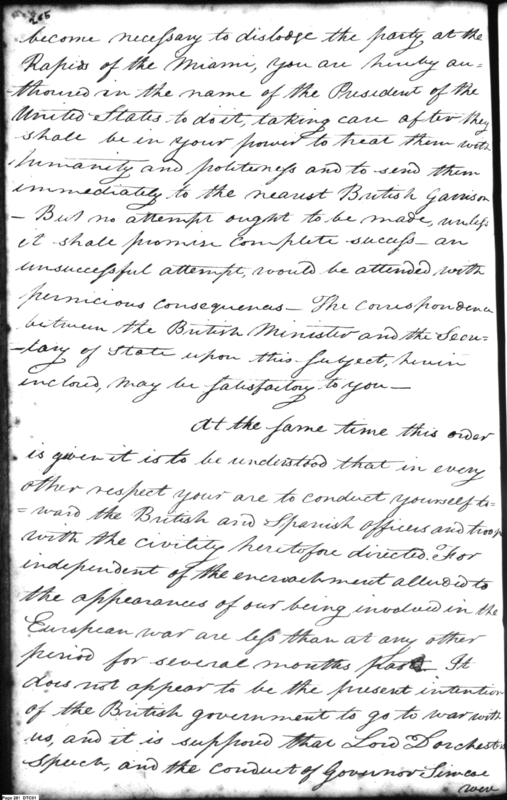 265
become necessary to dislodge the party at the
Rapids of the Miami, you are hereby au=
thorized in the name of the President of the
United States to do it, taking care after they
shall be in your power to treat them with
humanity and politeness and to send them
immediately to the nearest British Garrison
— But no attempt ought to be made, unless
it shall promise complete success — an
unsuccessful attempt, would be attended with
pernicious consequences — The correspondence
between the British Minister and the Secre=
=tary of State upon this subject, herein
inclosed, may be satisfactory to you —
At the same time this order
is given it is to be understood that in every
other respect your are to conduct yourself to=
=ward the British and Spanish officers and troops
with the civility heretofore directed. For
independent of the encroachment alluded to
the appearances of our being involved in the
European war are less than at any other
period for several months past. It
does not appear to be the present intention
of the British government to go to war with
us, and it is supposed that Lord Dorchesters
Speech, and the conduct of Governor Simcoe
were
Page 281 DTC01